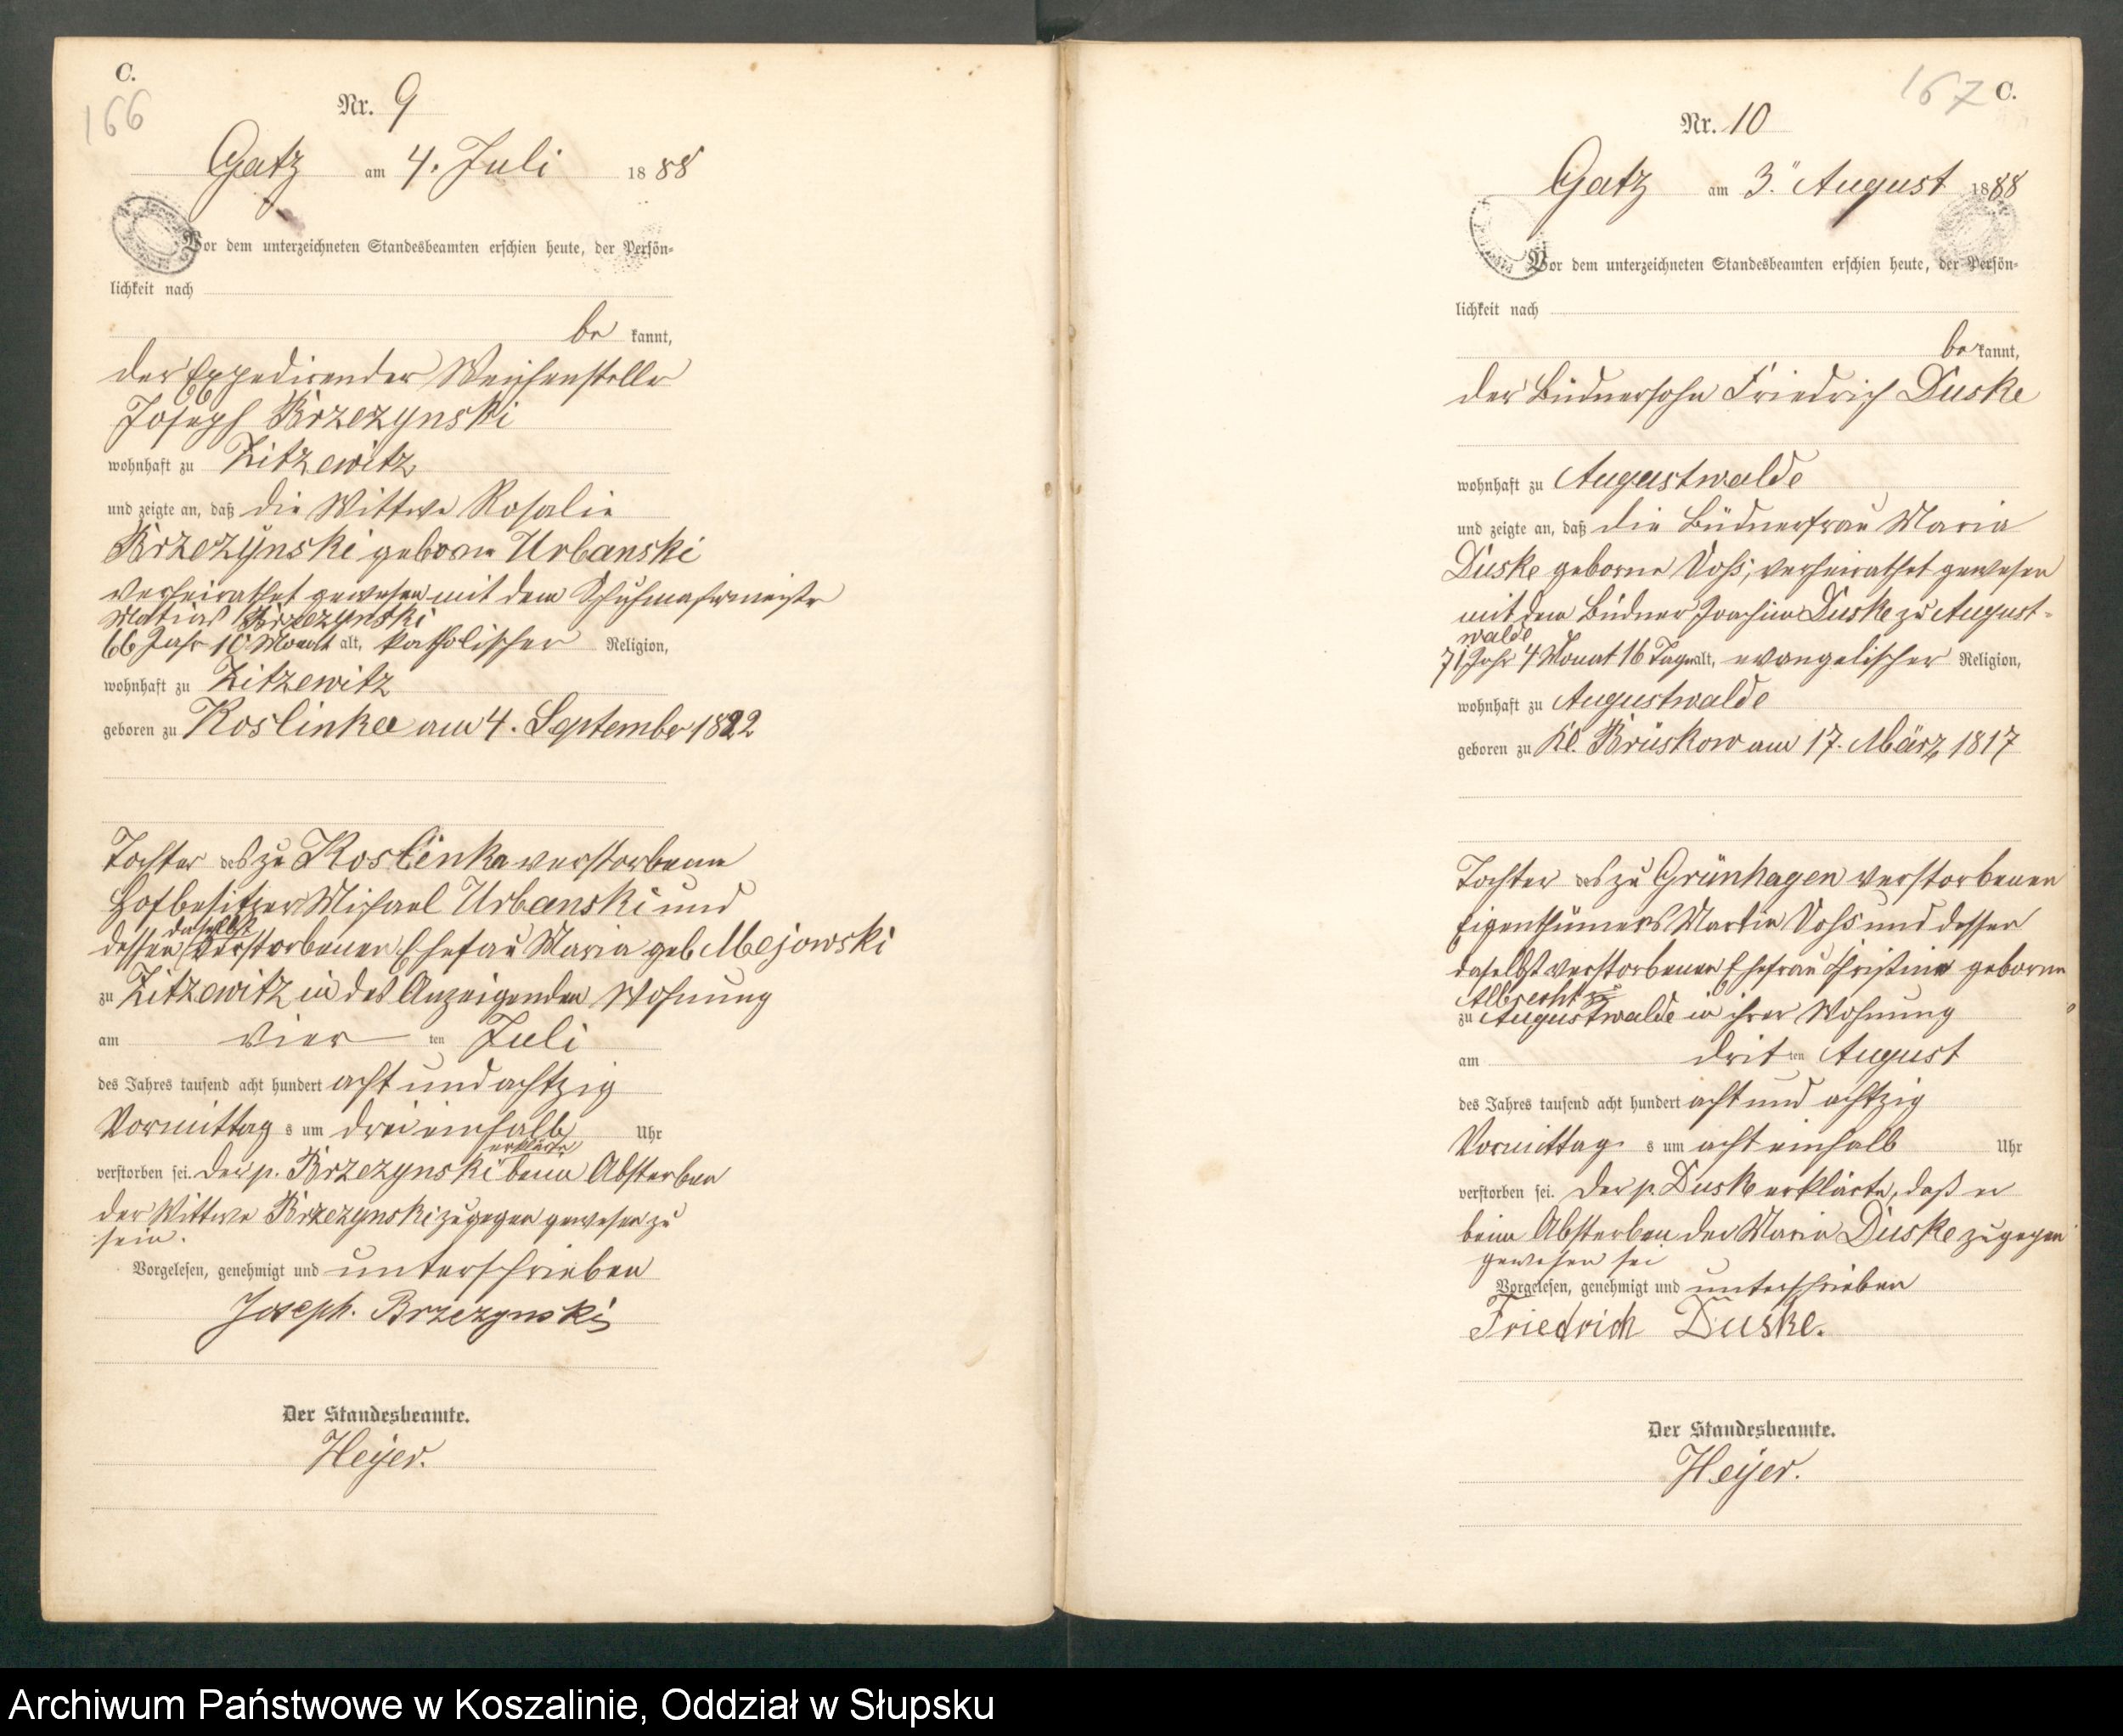 C.
166
Nr. 9
Gatz am 4. Juli 1888
Vor dem unterzeichneten Standesbeamten erschien heute, der Persön-
lichkeit nach
be kannt,
der Expedirender Weichensteller
Joseph Brzezynski
wohnhaft zu Zitzewitz
und zeigte an, daß die Wittwe Rosalie
Brzezynski geborne Urbanski
verheirathet gewesen mit dem Schuhmachermeister
Matias Brzezynski
66 Jahr 10 Monat alt, katholischer Religion,
wohnhaft zu Zitzewitz
geboren zu Koslinka am 4. September 1822
Tochter des zu Koslinka verstorbenen
Hofbesitzer Michael Urbanski und
daselbst
dessen verstorbenen Ehefrau Maria geb Mejowski
zu Zitzewitz in des Anzeigenden Wohnung
am vier ten Juli
des Jahres tausend acht hundert acht und achtzig
Vormittag s um drei einhalb Uhr
erklärte
verstorben sei. Der p. Brzezynski beim Absterben
der Wittwe Brzezynski zugegen gewesen zu
sein.
Vorgelesen, genehmigt und unterschrieben
Joseph. Brzezynski
Der Standesbeamte.
Heyer.
167 C.
Nr. 10
Gatz am 3. August 1888
Vor dem unterzeichneten Standesbeamten erschien heute, der Persön-
lichkeit nach
be kannt,
der Büdnersohn Friedrich Duske
wohnhaft zu Augustwalde
und zeigte an, daß die Büdnerfrau Maria
Duske geborne Voß, verheirathet gewesen
mit dem Büdner Joachim Duske zu August-
walde
71 Jahr 4 Monat 16 Tage alt, evangelischer Religion,
wohnhaft zu Augustwalde
geboren zu Kl. Brüskow am 17. März 1817
Tochter des zu Grünhagen verstorbenen
Eigenthümers Martin Voß und dessen
daselbst verstorbenen Ehefrau Christine geborne
Albrecht
zu Augustwalde in ihrer Wohnung
am drit ten August
des Jahres tausend acht hundert acht und achtzig
Vormittag s um acht einhalb Uhr
verstorben sei. Der p. Duske erklärte, daß er
beim Absterben der Maria Duske zugegen
gewesen sei
Vorgelesen, genehmigt und unterschrieben
Friedrich Duske.
Der Standesbeamte.
Heyer.
Archiwum Państwowe w Koszalinie, Oddział w Słupsku